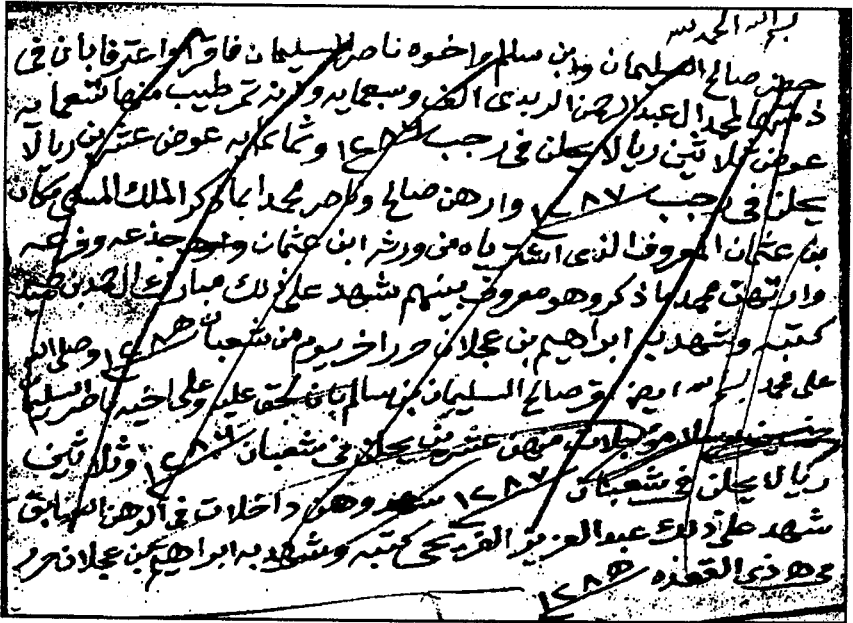 بسم الله الحمد لله
حضر صالح السليمان بن سلم واخوه ناصر السليمان فاقروا واعترفا بان في
ذمتهما لمحمد ال عبد الرحمن الربدي الف وسبعمايه وزنه تمر طيب منها تسعمايه
عوض ثلاثين ريالا يحلن في رجب ١٢٨٦ وثمانمايه عوض عشرين ريالا
يحلن في رجب ١٢٨٧ وارهن صالح وناصر محمدا بما ذكر الملك المسمى مكان
بن عثمان المعروف الذي اشترياه من ورثه ابن عثمان جذعه وفرعه
وارتهن محمد ما ذكر وهو معروف بينهم شهد على ذلك مبارك ال حمد بن
كتبه وشهد به ابراهيم بن عجلان حرر اخر يوم من شعبان ١٢٨٥ وصلى الله
على محمد بسم الله ايضا اقر صالح السليمان بن سالم بان لحق عليه وعلى اخيه ناصر السليمان
خمسين ريالا مؤجلات منهن عشرين يحلن في شعبان ١٢٨٦ وثلاثين
ريالا يحلن في شعبان ١٢٨٧ وهن داخلات في الرهن السابق
شهد على ذلك عبد العزيز كتبه وشهد به ابراهيم بن عجلان حرر
في ٥ ذي القعده ١٢٨٥